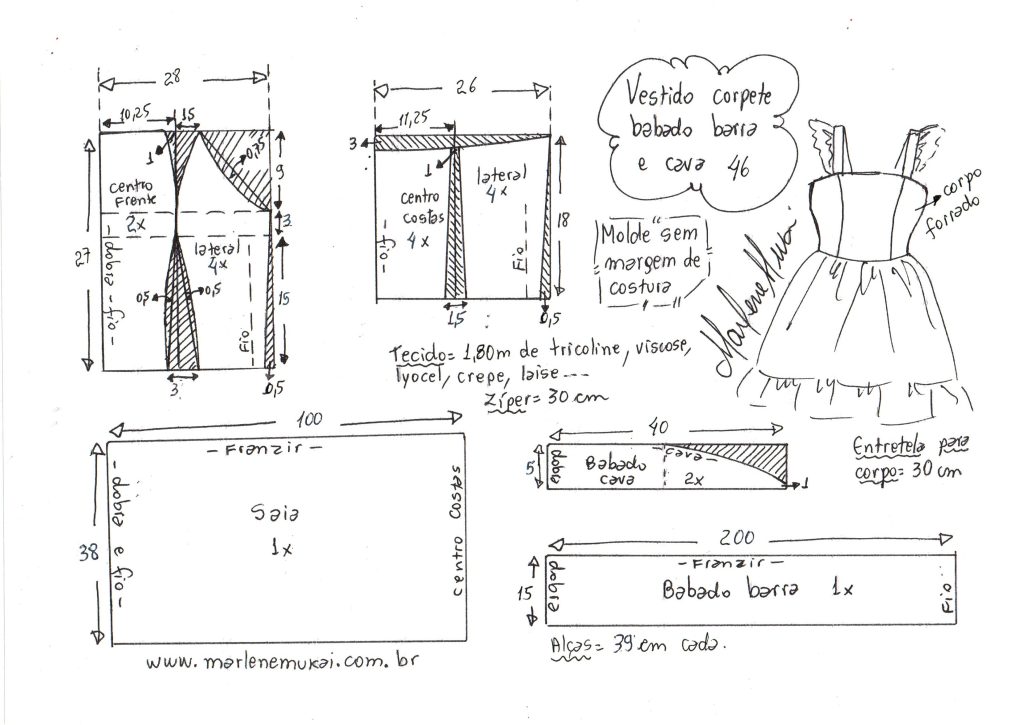 28
10,25
1,5
1
0,75
9
centro
Frente
2x
3
27
- dobra - fio -
lateral
4x
0,5
0,5
15
Fio
3
0,5
26
11,25
3
1
centro
costas
4x
lateral
4x
- fio -
Fio
18
1,5
0,5
Vestido corpete
babado barra
e cava 46
Molde sem
margem de
costura
corpo
forrado
Marlene Mukai
Tecido= 1,80m de tricoline, viscose,
lyocel, crepe, laise ---
Zíper= 30 cm
100
- Franzir -
- dobra e fio -
Saia
1x
centro costas
38
www.marlenemukai.com.br
40
5
dobra
Babado
cava
- cava -
2x
1
Entretela para
corpo= 30 cm
200
- Franzir -
15
dobra
Babado barra 1x
Fio
Alças= 39 cm cada.